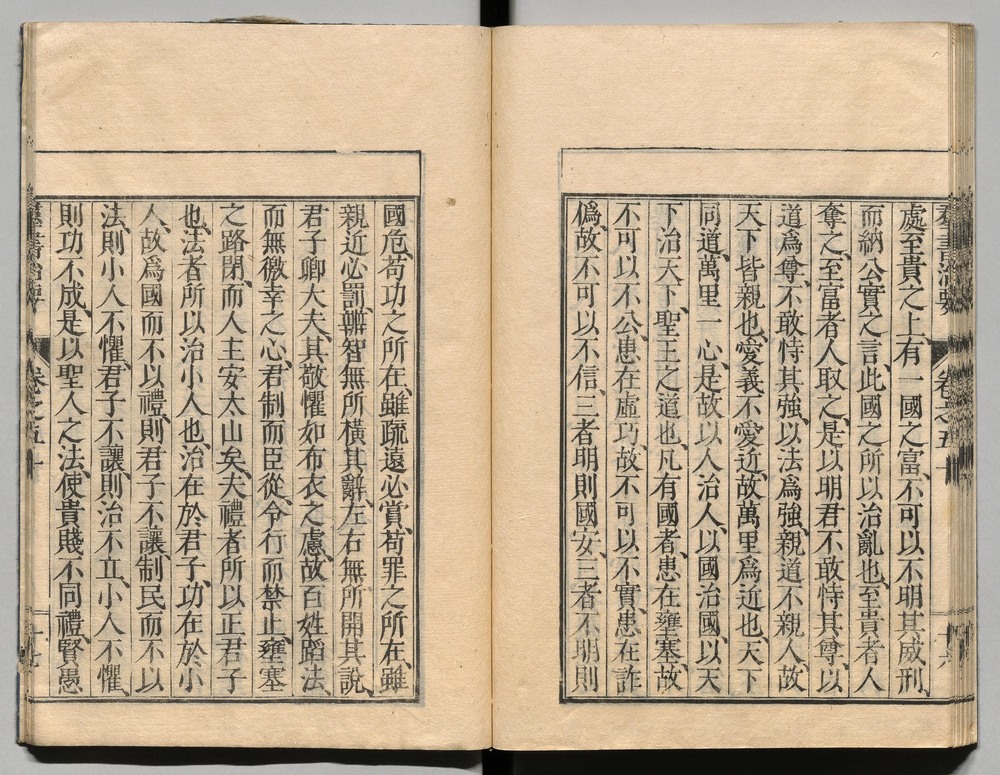 群書治要 卷之五十 十六
處至貴之上、有一國之富、不可以不明其威刑、
而納公實之言、此國之所以治亂也、至貴者人
奪之、至富者人取之、是以明君不敢恃其尊、以
道爲尊、不敢恃其強、以法爲強、親道不親人、故
天下皆親也、愛義不愛近、故萬里爲近也、天下
同道、萬里一心、是故以人治人、以國治國、以天
下治天下、聖王之道也、凡有國者、患在壅塞、故
不可以不公、患在虛巧、故不可以不實、患在詐
僞、故不可以不信、三者明則國安、三者不明則
國危、苟功之所在、雖疏遠必賞、苟罪之所在、雖
親近必罰、辨智無所橫其辭、左右無所開其說、
君子卿大夫、其敬懼如布衣之慮、故百姓蹈法、
而無徼幸之心、君制而臣從、令行而禁止、壅塞
之路閉、而人主安太山矣、夫禮者所以正君子
也、法者所以治小人也、治在於君子、功在於小
人、故爲國而不以禮、則君子不讓、制民而不以
法、則小人不懼、君子不讓、則治不立、小人不懼、
則功不成、是以聖人之法、使貴賤不同禮、賢愚
群書治要 卷之五十 十七